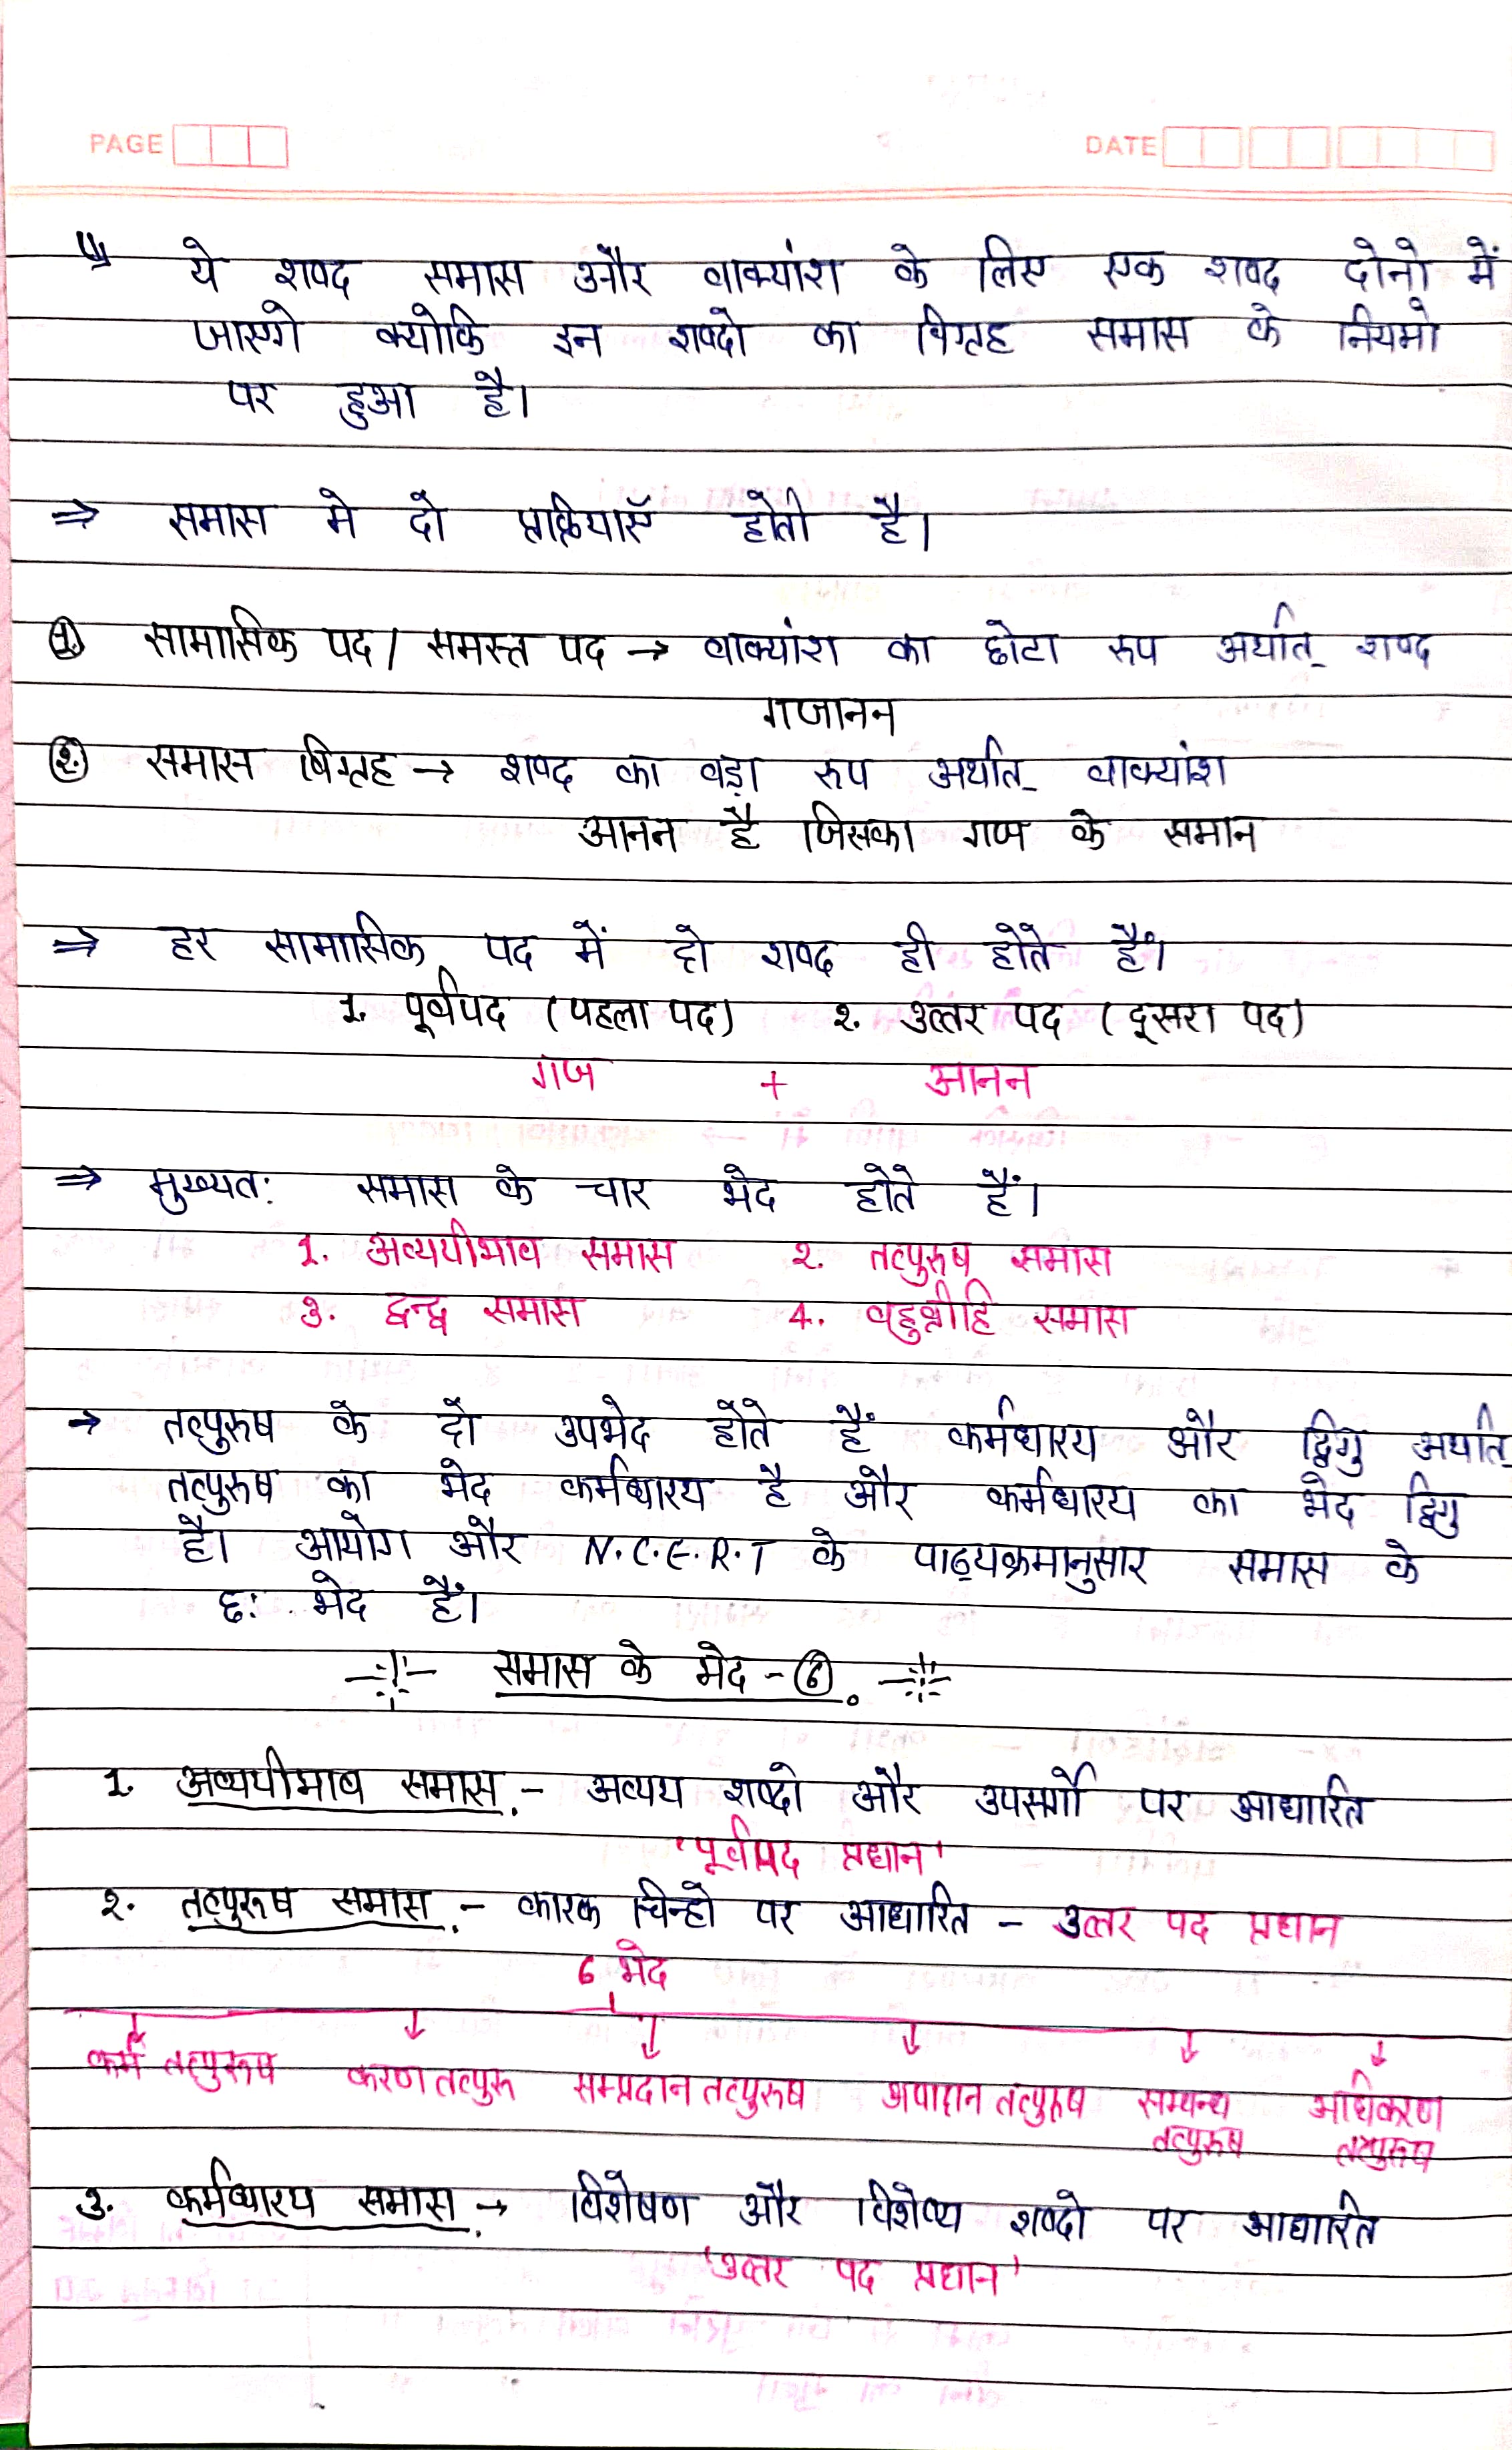 PAGE
DATE
ये शब्द समास और वाक्यांश के लिए एक शब्द दोनो में
जाएगे क्योकि इन शब्दो का विग्रह समास के नियमो
पर हुआ है।
⇒ समास मे दो प्रक्रियाएँ होती है।
1. सामासिक पद / समस्त पद → वाक्यांश का छोटा रूप अर्थात् शब्द
गजानन
2. समास विग्रह → शब्द का बड़ा रूप अर्थात् वाक्यांश
आनन है जिसका गज के समान
⇒ हर सामासिक पद में दो शब्द ही होते हैं।
1. पूर्वपद (पहला पद) 2. उत्तर पद (दूसरा पद)
गज + आनन
⇒ मुख्यत: समास के चार भेद होते हैं।
1. अव्ययीभाव समास 2. तत्पुरुष समास
3. द्वन्द्व समास 4. बहुब्रीहि समास
→ तत्पुरुष के दो उपभेद होते हैं कर्मधारय और द्विगु अर्थात्
तत्पुरुष का भेद कर्मधारय है और कर्मधारय का भेद द्विगु
है। आयोग और N.C.E.R.T के पाठ्यक्रमानुसार समास के
छ: भेद हैं।
समास के भेद - 6
1. अव्ययीभाव समास - अव्यय शब्दो और उपसर्गो पर आधारित
'पूर्वपद प्रधान'
2. तत्पुरुष समास - कारक चिन्हो पर आधारित - उत्तर पद प्रधान
6 भेद
कर्म तत्पुरुष करण तत्पुरु सम्प्रदान तत्पुरुष अपादान तत्पुरुष सम्बन्ध तत्पुरुष अधिकरण तत्पुरुष
3. कर्मधारय समास → विशेषण और विशेष्य शब्दो पर आधारित
'उत्तर पद प्रधान'